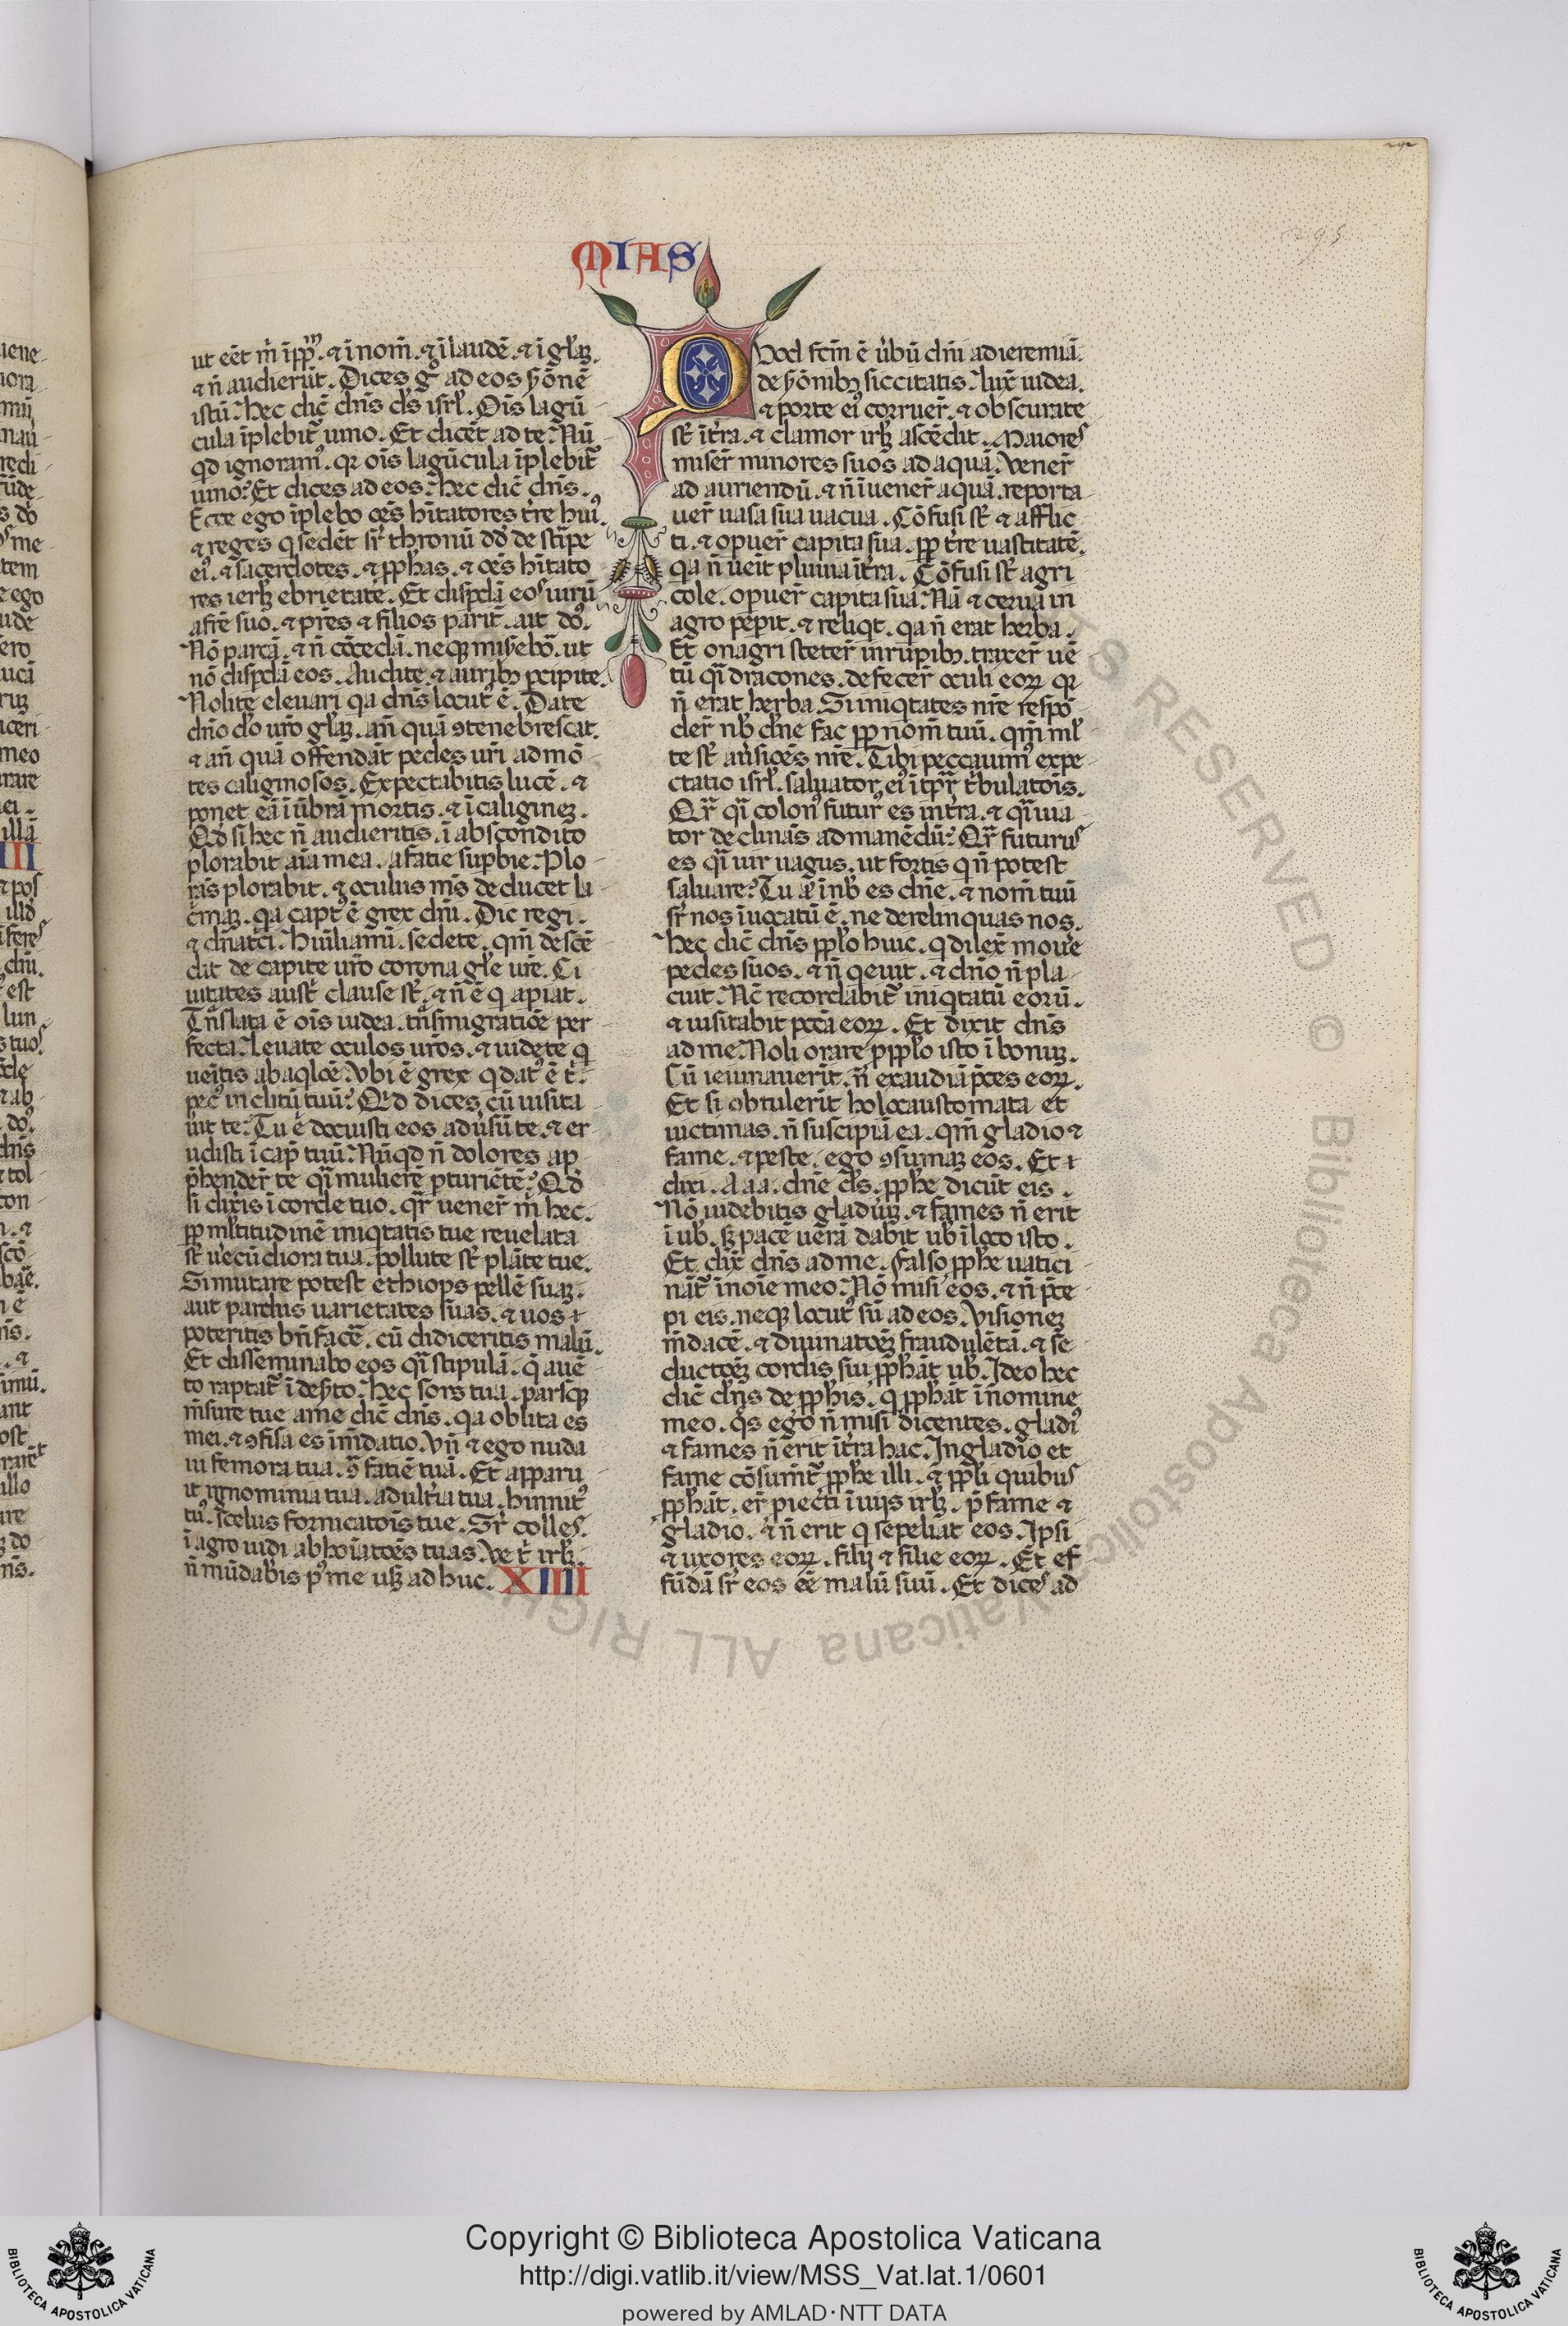 MIAS
ut eēt m̄ ī pp̄m. ⁊ ī nom̄. ⁊ ī laudē. ⁊ ī gl̄aꝫ.
⁊ n̄ audierūt. Dices gͦ ad eos s̄mōnē
istū: hec dic̄ dn̄s ds̄ isrl̄. Oīs lagū
cula īplebit̄ uino. Et dicēt ad te: Nū
qd ignoram᷒. qr oīs lagūcula īplebit̄
uino: Et dices ad eos: hec dic̄ dn̄s.
Ecce ego īplebo oēs hītatores tr̄e hui᷒.
⁊ reges q sedēt sr̄ thronū dd̄ de stīpe
ei᷒. ⁊ sacerdotes. ⁊ pphas. ⁊ oēs hītato
res ierl̄ ebrietate. Et dispdā eos uirū
a fr̄e suo. ⁊ pr̄es ⁊ filios parit̄. ait do᷒.
Nō parcā. ⁊ n̄ cōcedā. neqꝫ misebo᷒. ut
nō dispdā eos. Audite. ⁊ auribꝫ pcipite.
Nolite eleuari qa dn̄s locut᷒ ē. Date
dn̄o do uro gl̄aꝫ. an̄ quā ꝯtenebrescat.
⁊ an̄ quā offendāt pedes ur̄i ad mō
tes caliginosos. Expectabitis lucē. ⁊
ponet eā ī ūbrā mortis. ⁊ ī caligineꝫ.
Qd si hec n̄ audieritis. ī abscondito
plorabit aīa mea. a facie supbie: Plo
rās plorabit. ⁊ oculus m̄s deducet la
c̄maꝫ. qa capt᷒ ē grex dn̄i. Dic regi.
⁊ dn̄atci. huīliamī. sedete. qm̄ descē
dit de capite ur̄o corona gl̄e ur̄e. Ci
uitates austr̄ clause st̄. ⁊ n̄ ē q apiat.
Tn̄slata ē oīs iudea. tn̄smigratiōe per
fecta: Leuate oculos ur̄os. ⁊ uidete q
ueītis ab aqloē: Vbi ē grex q dat᷒ ē t̄.
pec᷒ inclitū tuū: Qd dices cū uisita
uit te: Tu ē docuisti eos adūsū te. ⁊ er
udisti ī cap̄ tuū: Nūqd n̄ dolores ap
p̄hender̄ te q̄i mulierē pturiētē: Qd
si dixis ī corde tuo. qr̄ uener̄ m̄ hec.
pp ml̄titudinē iniqtatis tue reuelata
st̄ uecūdiora tua. pollute st̄ plāte tue.
Si mutare potest ethiops pellē suaꝫ.
aut pardus uarietates suas. ⁊ uos ⁊
poteritis bn̄ facē. cū didiceritis malū.
Et disseminabo eos q̄i stipulā. q̄ auē
to raptat̄ ī desto. hec sors tua. parsqꝫ
m̄sure tue a me dic̄ dn̄s. qa oblita es
mei. ⁊ ꝯfisa es īm̄datio. Vn̄ ⁊ ego nuda
ui femora tua. ꝯ̄ faciē tuā. Et apparu
it ignominia tua. adult̄ia tua. hinnit᷒
tu᷒. scelus fornicatōis tue. Sr̄ colles.
ī agro uidi abhoīatoēs tuas. Ve t̄ irl̄.
n̄ mūdabis p᷒ me usqꝫ ad huc. XIIII
Quod fcm̄ ē ūbū dn̄i ad ieremiā.
de s̄mōnibꝫ siccitatis. Lux̄ iudea.
⁊ porte ei᷒ corruer̄. ⁊ obscurate
st̄ ī tr̄a. ⁊ clamor irl̄ ascēdit. Maiores
miser̄ minores suos ad aquā. Vener̄
ad auriendū. ⁊ n̄ īuener̄ aquā. reporta
uer̄ uasa sua uacua. Cōfusi st̄ ⁊ afflic
ti. ⁊ opuer̄ capita sua. pp tr̄e uastitatē.
qa n̄ ueīt pluuia ī tr̄a. Cōfusi st̄ agri
cole. opuer̄ capita sua: Nā ⁊ cerua in
agro pēpit. ⁊ reliqt. qa n̄ erat herba.
Et onagri steter̄ in rupibꝫ. traxer̄ uē
tū q̄i dracones. defecer̄ oculi eoꝝ qr
n̄ erat herba. Si iniqtates nr̄e respō
der̄ nb̄ dn̄e fac pp nom̄ tuū. qm̄ ml̄
te st̄ aūsioēs nr̄e. Tibi peccauim᷒ expe
ctatio isrl̄. saluator ei᷒ ī tpr̄ t̄bulatōis.
Qr̄ q̄i colon᷒ futur᷒ es in tr̄a. ⁊ q̄i uia
tor declināś ad manēdū: Qr̄ futurus
es q̄i uir uagus. ut fortis q n̄ potest
saluare: Tu aū ī nb̄ es dn̄e. ⁊ nom̄ tuū
sr̄ nos īuocatū ē. ne derelinquas nos.
hec dic̄ dn̄s pplo huic. q dilex̄ moue
pedes suos. ⁊ n̄ qeuit. ⁊ dn̄o n̄ pla
cuit. Nc̄ recordabit̄ iniqtatū eorū.
⁊ uisitabit pccā eoꝝ. Et dixit dn̄s
ad me: Noli orare p pplo isto ī bonuꝫ.
Cū ieiunauerīt. n̄ exaudiā pces eoꝝ.
Et si obtulerīt holocaustomata et
uictimas. n̄ suscipiā ea. qm̄ gladio ⁊
fame. ⁊ peste. ego ꝯsumaꝫ eos. Et ⁊
dixi. A a a. dn̄e ds̄. pphe dicūt eis.
Nō uidebitis gladiuꝫ. ⁊ fames n̄ erit
ī ub̄. sꝫ pacē uerā dabit ub̄ ī loco isto.
Et dix̄ dn̄s ad me. Falso pphe uatici
nāt̄ ī noīe meo: Nō misi eos. ⁊ n̄ p̄ce
pi eis. neqꝫ locut᷒ sū ad eos. Visioneꝫ
m̄dacē. ⁊ diuinatoēꝫ fraudulētā. ⁊ se
ductoēꝫ cordis sui pphāt ub̄. Ideo hec
dic̄ dn̄s de pphis. q pphāt ī nomine
meo. qs ego n̄ misi dicentes. gladi᷒
⁊ fames n̄ erit ī tr̄a hac. In gladio et
fame cōsumt̄ pphe illi. ⁊ ppl̄i quibus
pphāt. er̄ piecti ī uijs irl̄. p̄ fame ⁊
gladio. ⁊ n̄ erit q sepeliat eos. Ipsi
⁊ uxores eoꝝ. filij ⁊ filie eoꝝ. Et ef
fūdā sr̄ eos eē malū suū. Et dices ad
Copyright © Biblioteca Apostolica Vaticana
http://digi.vatlib.it/view/MSS_Vat.lat.1/0601
powered by AMLAD·NTT DATA